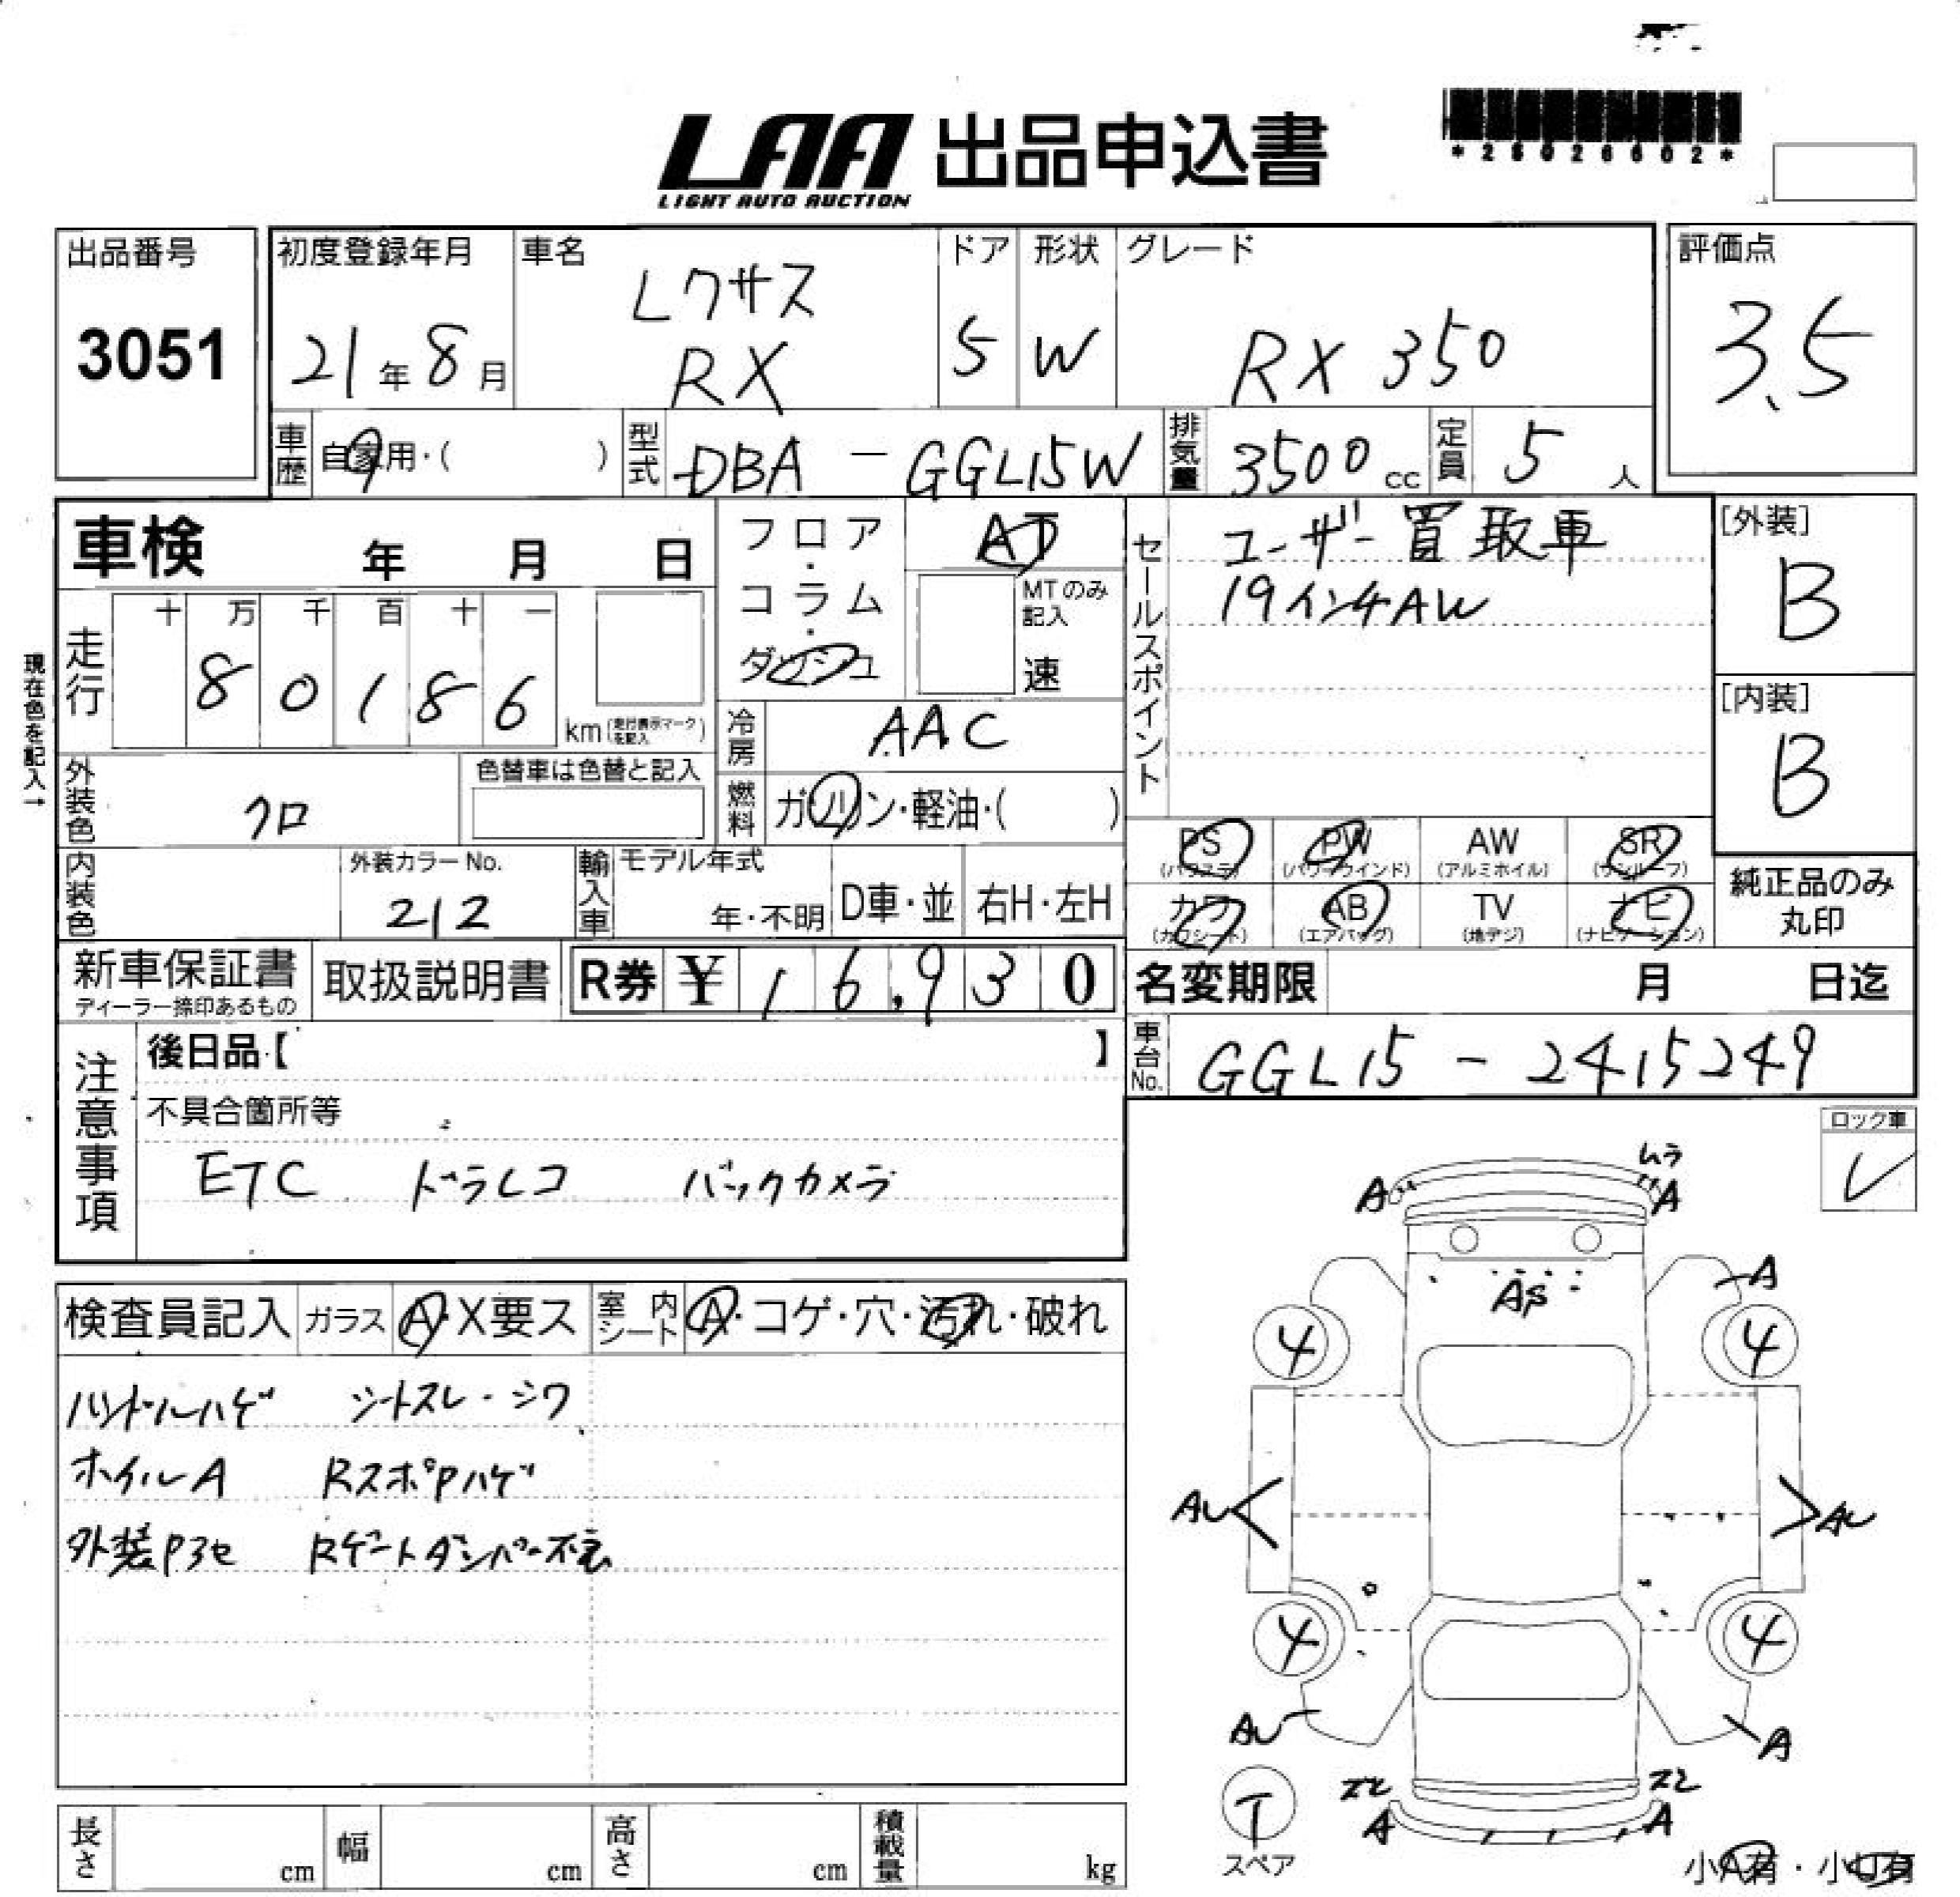 LAA 出品申込書
LIGHT AUTO AUCTION
*26026602*
出品番号
3051
初度登録年月
21年8月
車名
レクサス
RX
ドア
5
形状
W
グレード
RX 350
評価点
3.5
車歴
自家用・( )
型式
DBA - GGL15W
排気量
3500cc
定員
5人
車検 年 月 日
フロア・コラム・ダッシュ
AT
MTのみ記入
速
セールスポイント
ユーザー買取車
19インチAW
[外装]
B
[内装]
B
現在色を記入→
走行
十 万 千 百 十 一
8 0 1 8 6
km(走行表示マークを記入)
冷房
AAC
燃料
ガソリン・軽油・( )
外装色
クロ
色替車は色替と記入
内装色
外装カラーNo.
212
輸入車
モデル年式
年・不明
D車・並
右H・左H
PS
(パワステ)
PW
(パワーウインド)
AW
(アルミホイル)
SR
(サンルーフ)
カワ
(カワシート)
AB
(エアバッグ)
TV
(地デジ)
ナビ
(ナビゲーション)
純正品のみ
丸印
新車保証書
ディーラー捺印あるもの
取扱説明書
R券 ¥ 16,930
名変期限 月 日迄
車台No.
GGL15 - 2415249
注意事項
後日品【 】
不具合箇所等
ETC ドラレコ バックカメラ
ロック車
レ
検査員記入
ガラス A・X要ス
室内シート A・コゲ・穴・汚れ・破れ
ハンドルハゲ シートスレ・シワ
ホイルA RスポPハゲ
外装Pヨセ Rゲートダンパー不良
ムラ
A A
AS
A
4 4
AU AU
4 4
AU A
スレ スレ
A A
T
スペア
小A有・小U有
長さ cm
幅 cm
高さ cm
積載量 kg